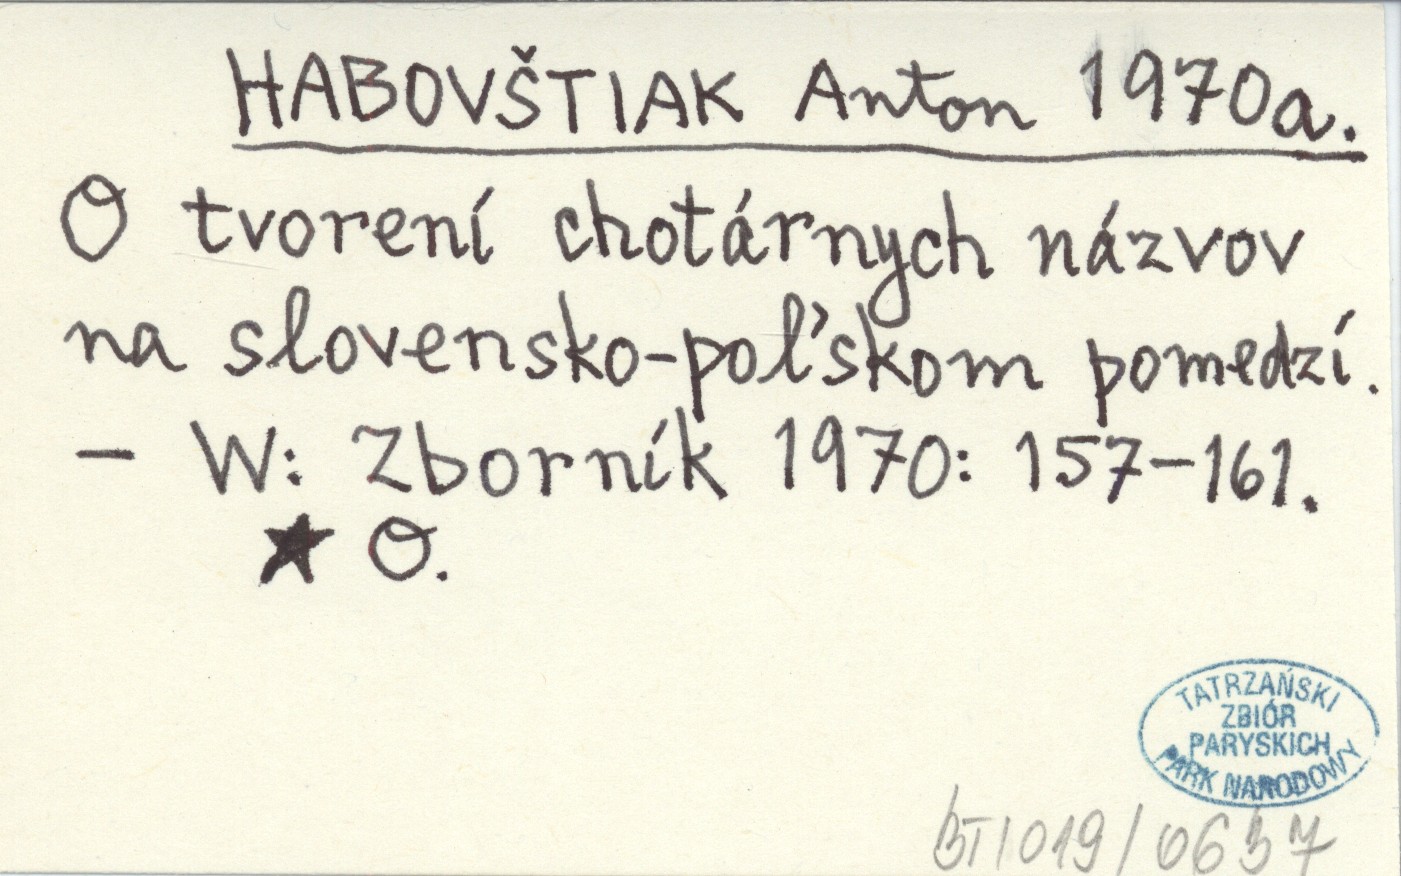 HABOVŠTIAK Anton 1970a.
O tvorení chotárnych názvov
na slovensko-poľskom pomedzí.
— W: Zborník 1970: 157-161.
★ O.
TATRZAŃSKI
ZBIÓR
PARYSKICH
PARK NARODOWY
BT/019/0637